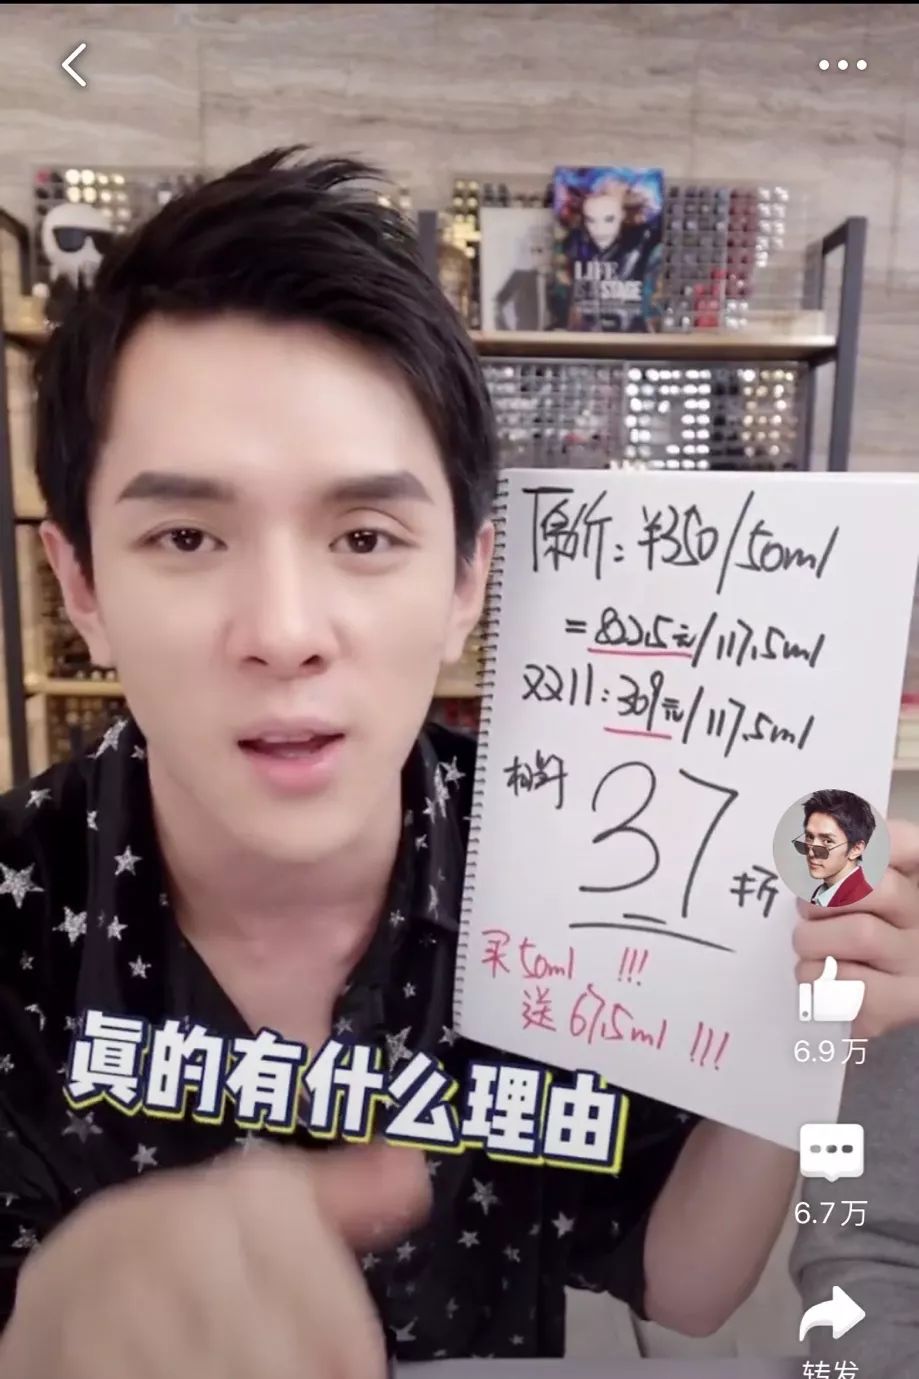 LIFE
IS A STAGE
原价：¥350/50ml
=822.5元/117.5ml
双11：309元/117.5ml
相当于
37
折
买50ml !!!
送67.5ml !!!
真的有什么理由
6.9万
6.7万
转发